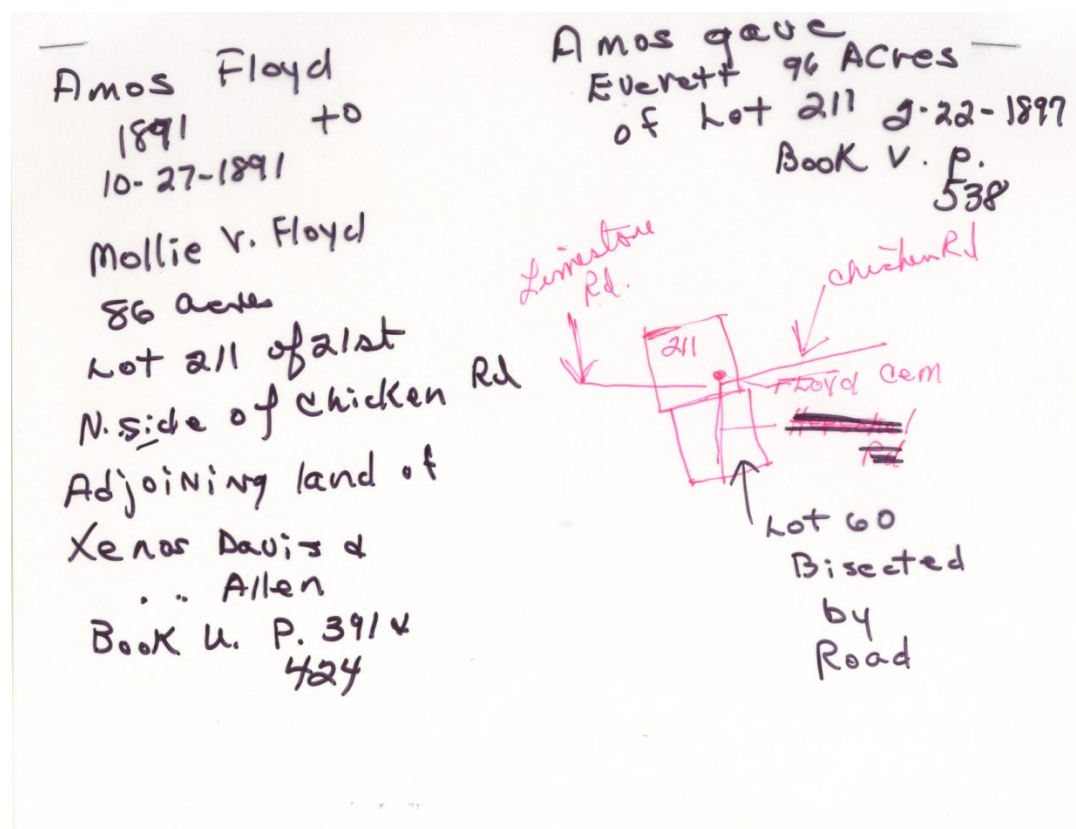 Amos Floyd
1891 to
10-27-1891
Mollie V. Floyd
86 acres
Lot 211 of 21st
N. side of Chicken Rd
Adjoining land of
Xenos Davis &
" " Allen
Book U. P. 391 &
424
Amos gave
Everett 96 Acres
of Lot 211 2-22-1897
Book V. P.
538
Limestone
Rd.
Chicken Rd
211
Floyd Cem
Rd
Lot 60
Bisected
by
Road